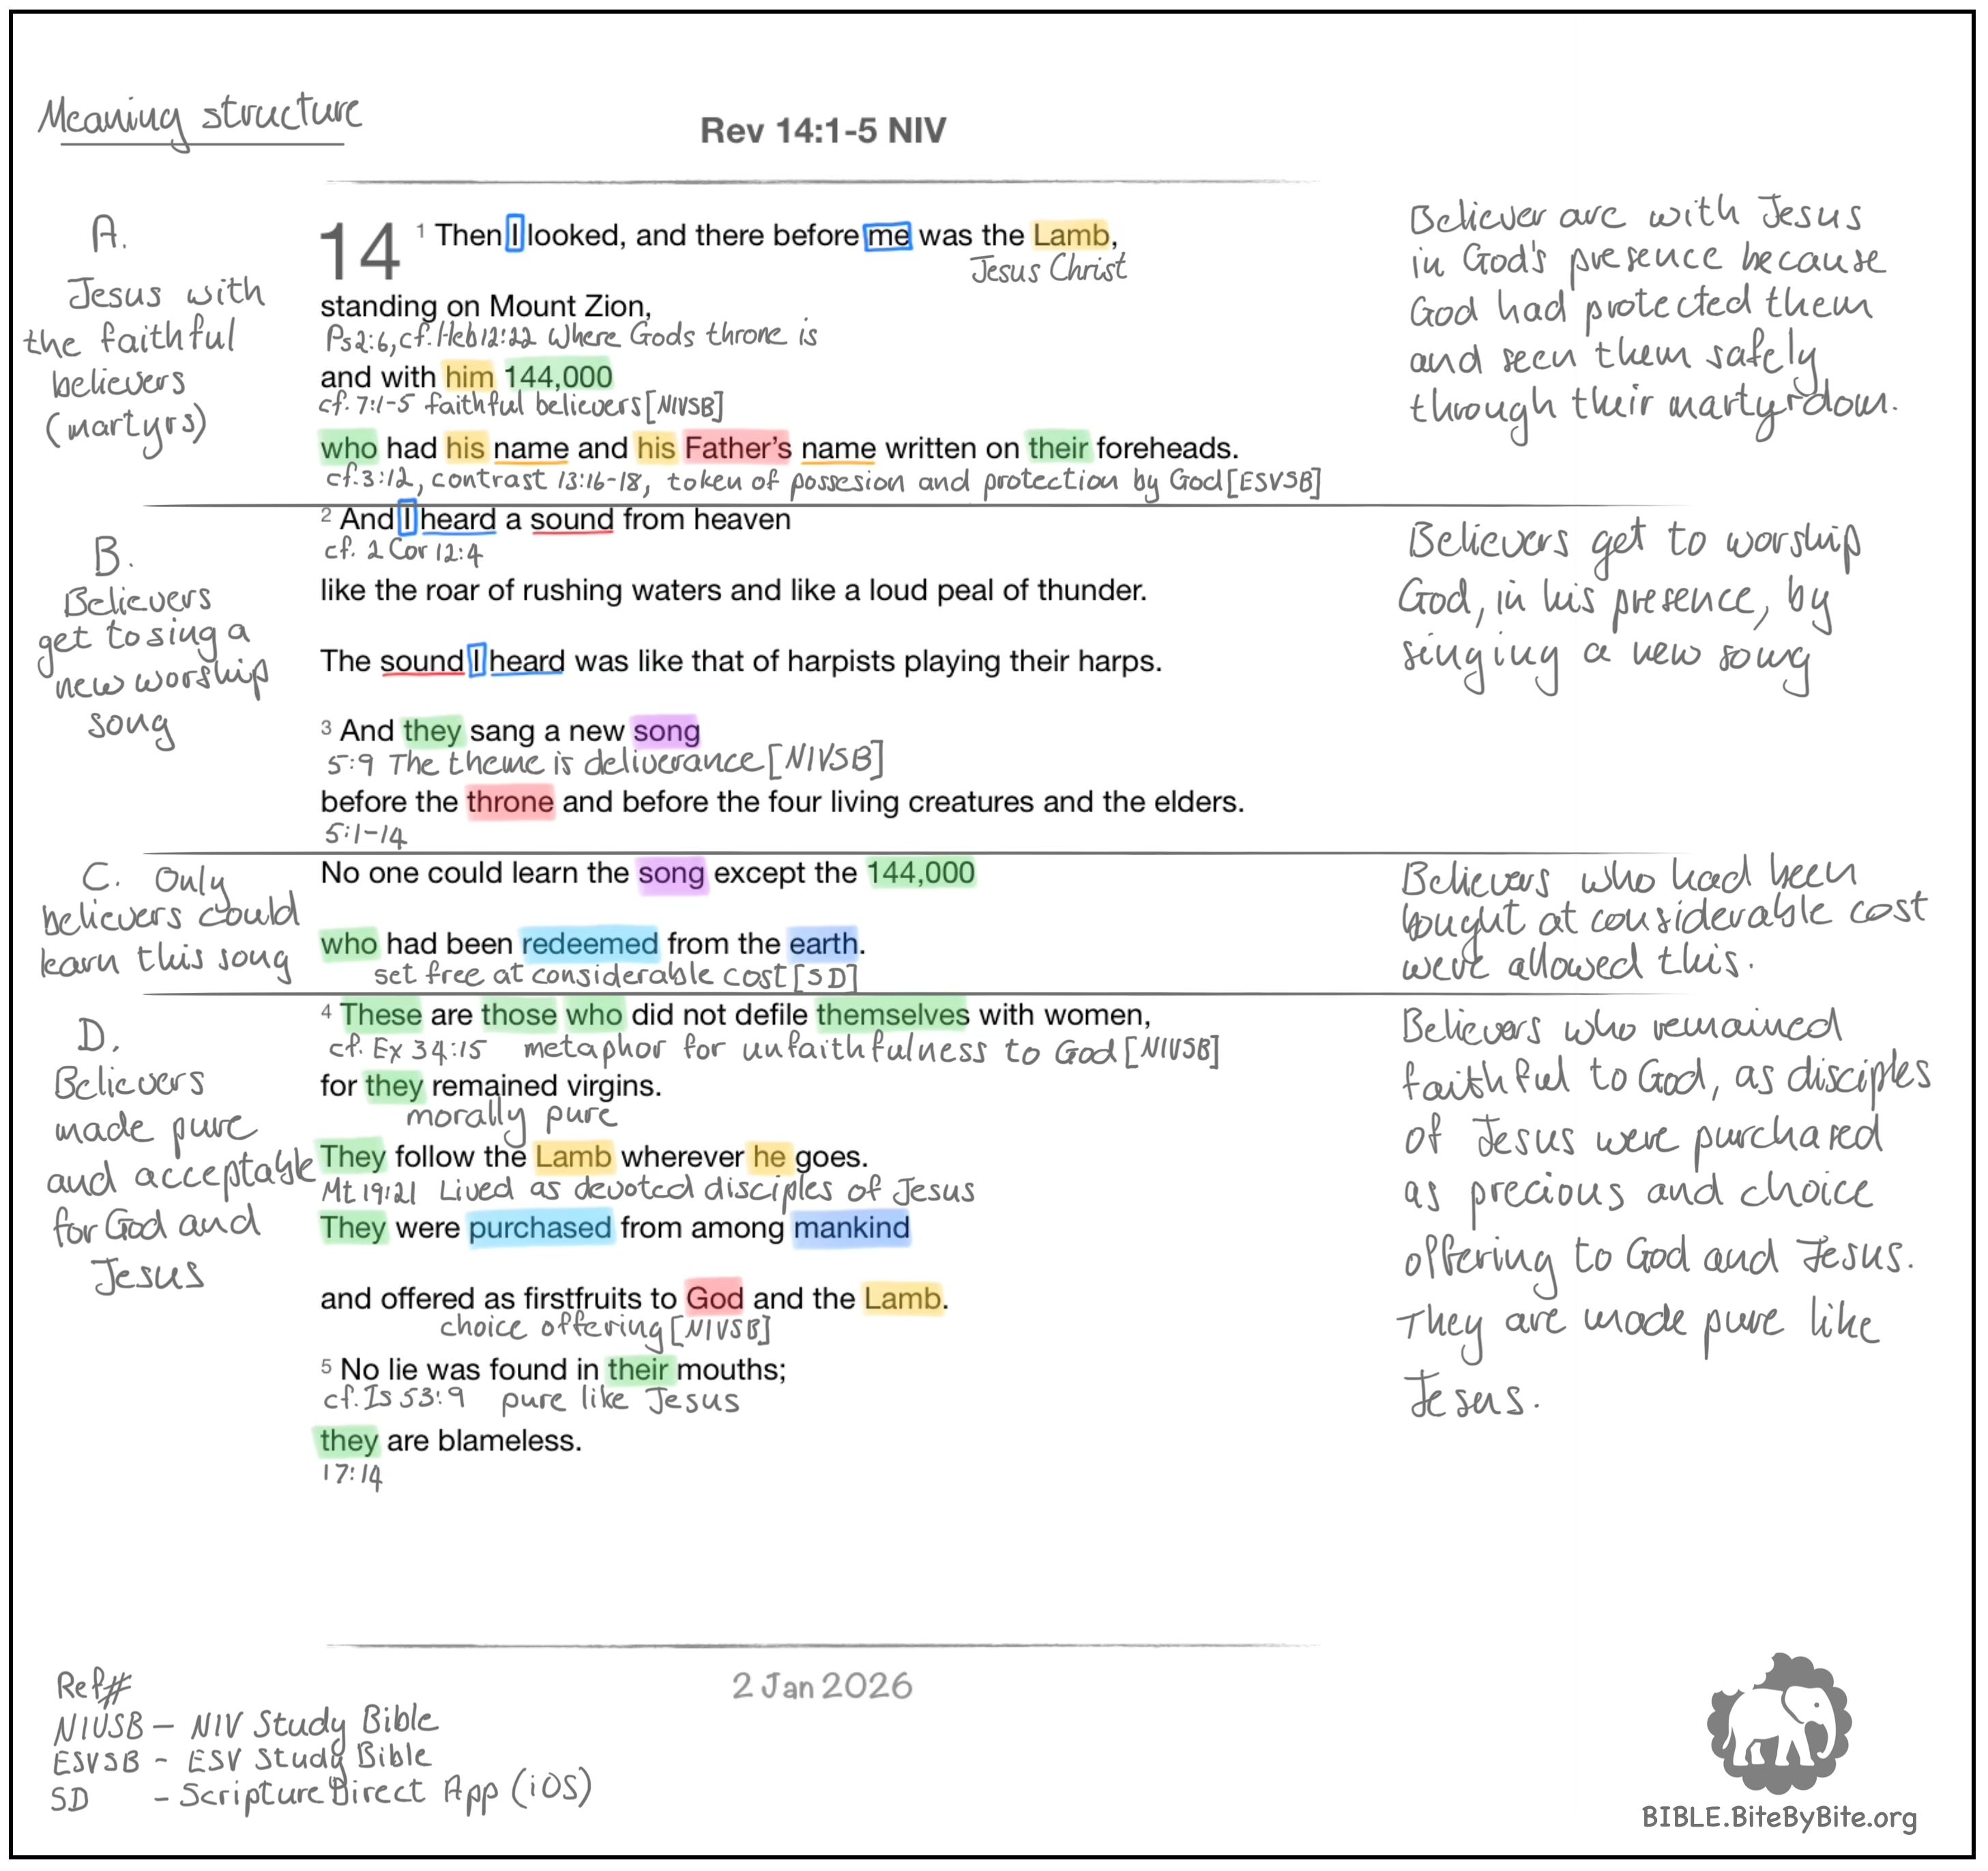 Meaning structure
Rev 14:1-5 NIV
A.
Jesus with
the faithful
believers
(martyrs)
14 1 Then I looked, and there before me was the Lamb,
Jesus Christ
standing on Mount Zion,
Ps2:6, cf. Heb 12:22 Where Gods throne is
and with him 144,000
cf. 7:1-5 faithful believers [NIVSB]
who had his name and his Father's name written on their foreheads.
cf. 3:12, contrast 13:16-18, token of possesion and protection by God [ESVSB]
Believer are with Jesus
in God's presence because
God had protected them
and seen them safely
through their martyrdom.
B.
Believers
get to sing a
new worship
song
2 And I heard a sound from heaven
cf. 2 Cor 12:4
like the roar of rushing waters and like a loud peal of thunder.
The sound I heard was like that of harpists playing their harps.
3 And they sang a new song
5:9 The theme is deliverance [NIVSB]
before the throne and before the four living creatures and the elders.
5:1-14
Believers get to worship
God, in his presence, by
singing a new song
C. Only
believers could
learn this song
No one could learn the song except the 144,000
who had been redeemed from the earth.
set free at considerable cost [SD]
Believers who had been
bought at considerable cost
were allowed this.
D.
Believers
made pure
and acceptable
for God and
Jesus
4 These are those who did not defile themselves with women,
cf. Ex 34:15 metaphor for unfaithfulness to God [NIVSB]
for they remained virgins.
morally pure
They follow the Lamb wherever he goes.
Mt 19:21 Lived as devoted disciples of Jesus
They were purchased from among mankind
and offered as firstfruits to God and the Lamb.
choice offering [NIVSB]
5 No lie was found in their mouths;
cf. Is 53:9 pure like Jesus
they are blameless.
17:14
Believers who remained
faithful to God, as disciples
of Jesus were purchased
as precious and choice
offering to God and Jesus.
They are made pure like
Jesus.
2 Jan 2026
Ref#
NIVSB - NIV Study Bible
ESVSB - ESV Study Bible
SD - Scripture Direct App (iOS)
BIBLE.BiteByBite.org